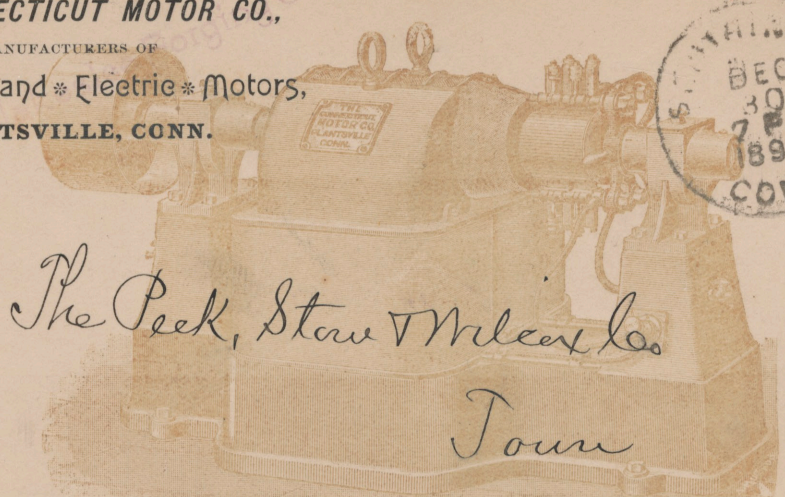 ECTICUT MOTOR CO.,
ANUFACTURERS OF
and * Electric * Motors,
TSVILLE, CONN.
THE
CONNECTICUT
MOTOR CO.
PLANTSVILLE
CONN.
DEC
30
7 P
189
CON
The Peck, Stow & Wilcox Co.
Town